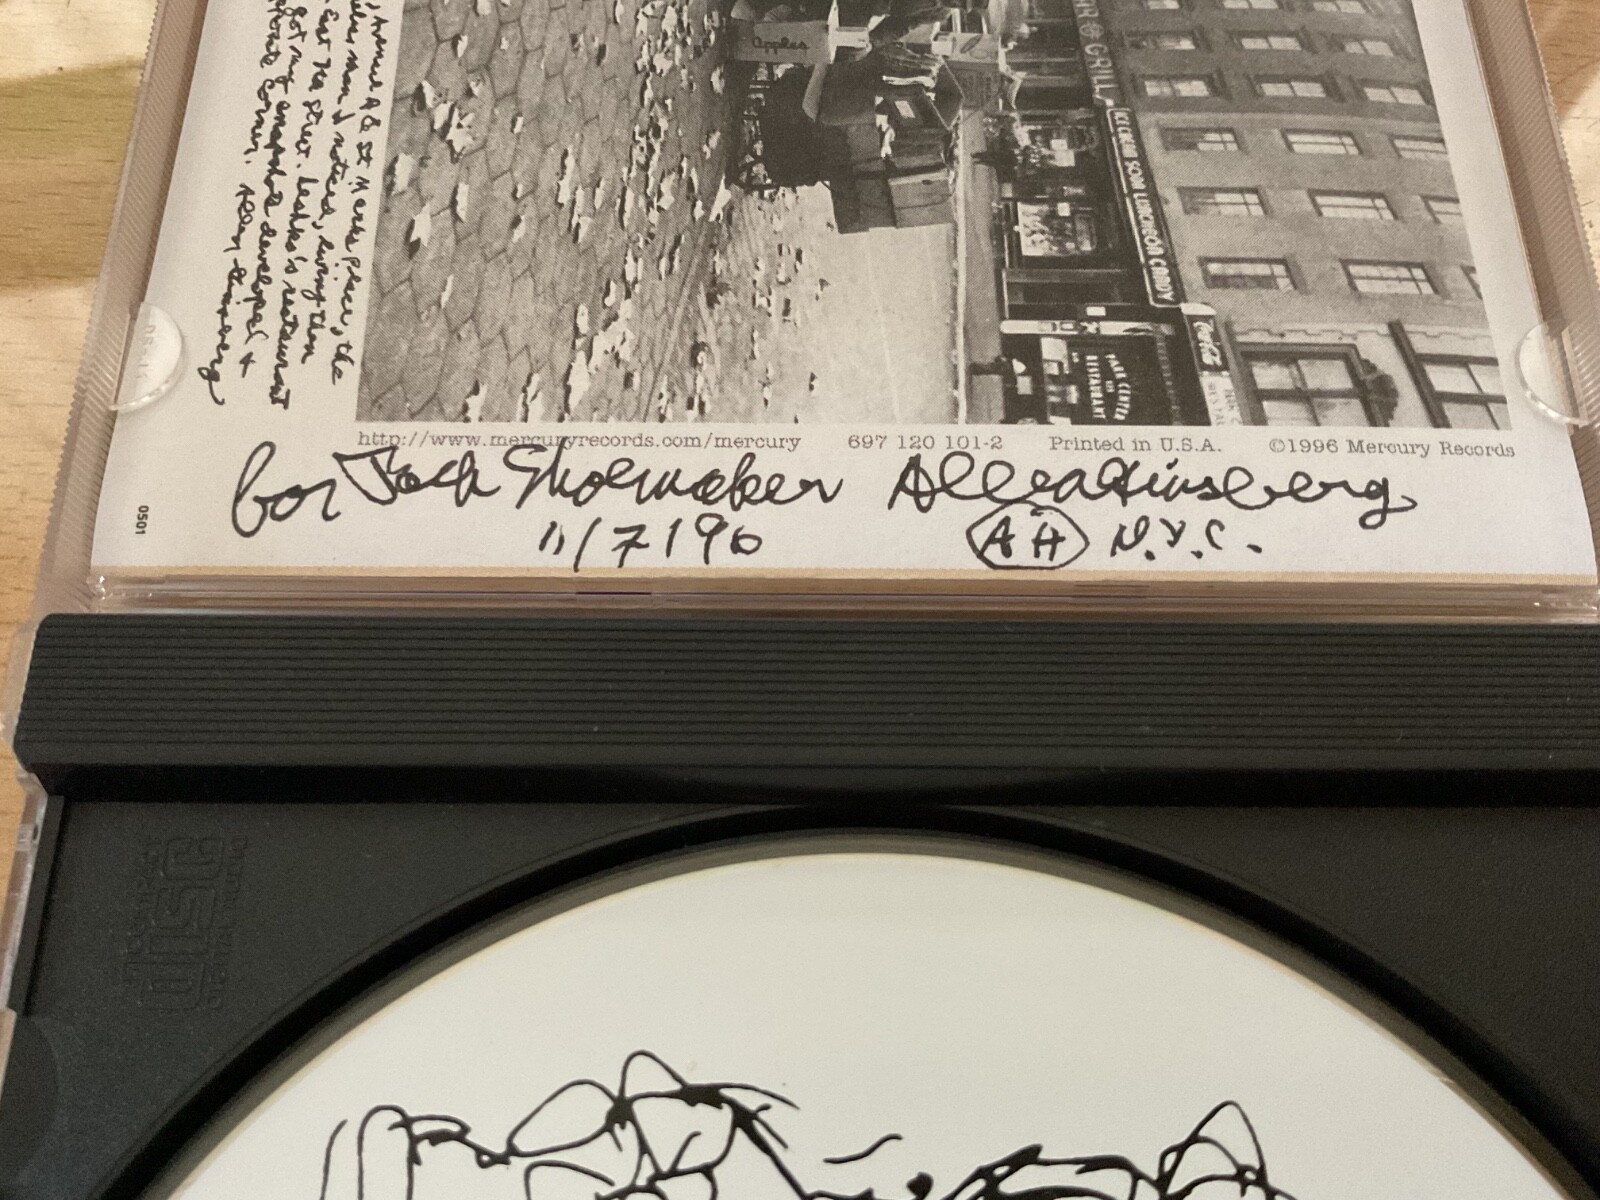 Avenue A & St. Marks place, the
man I noticed, living then
East 7th Street. Leshko's restaurant
got my snapshots developed &
corner. Allen Ginsberg
Apples
& GRILL
ICE CREAM SODA LUNCHEON CANDY
PARK CENTER
RESTAURANT
http://www.mercuryrecords.com/mercury 697 120 101-2 Printed in U.S.A. ©1996 Mercury Records
for Jack Shoemaker Allen Ginsberg
11/7/96 AH N.Y.C.
0501
COMPACT
disc
DIGITAL AUDIO